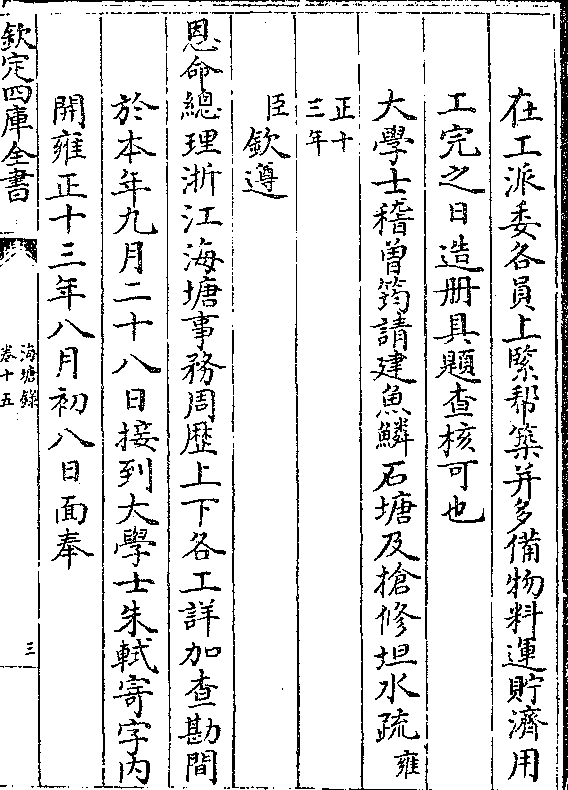 在工派委各員上緊幇築并多備物料運貯濟用
工完之日造册具題查核可也
大學士稽曾筠請建魚鱗石塘及搶修坦水疏雍
正十
三年
臣欽遵
恩命總理浙江海塘事務周歴上下各工詳加查勘間
於本年九月二十八日接到大學士朱軾寄字内
開雍正十三年八月初八日面奉
欽定四庫全書
海塘録
卷十五
三